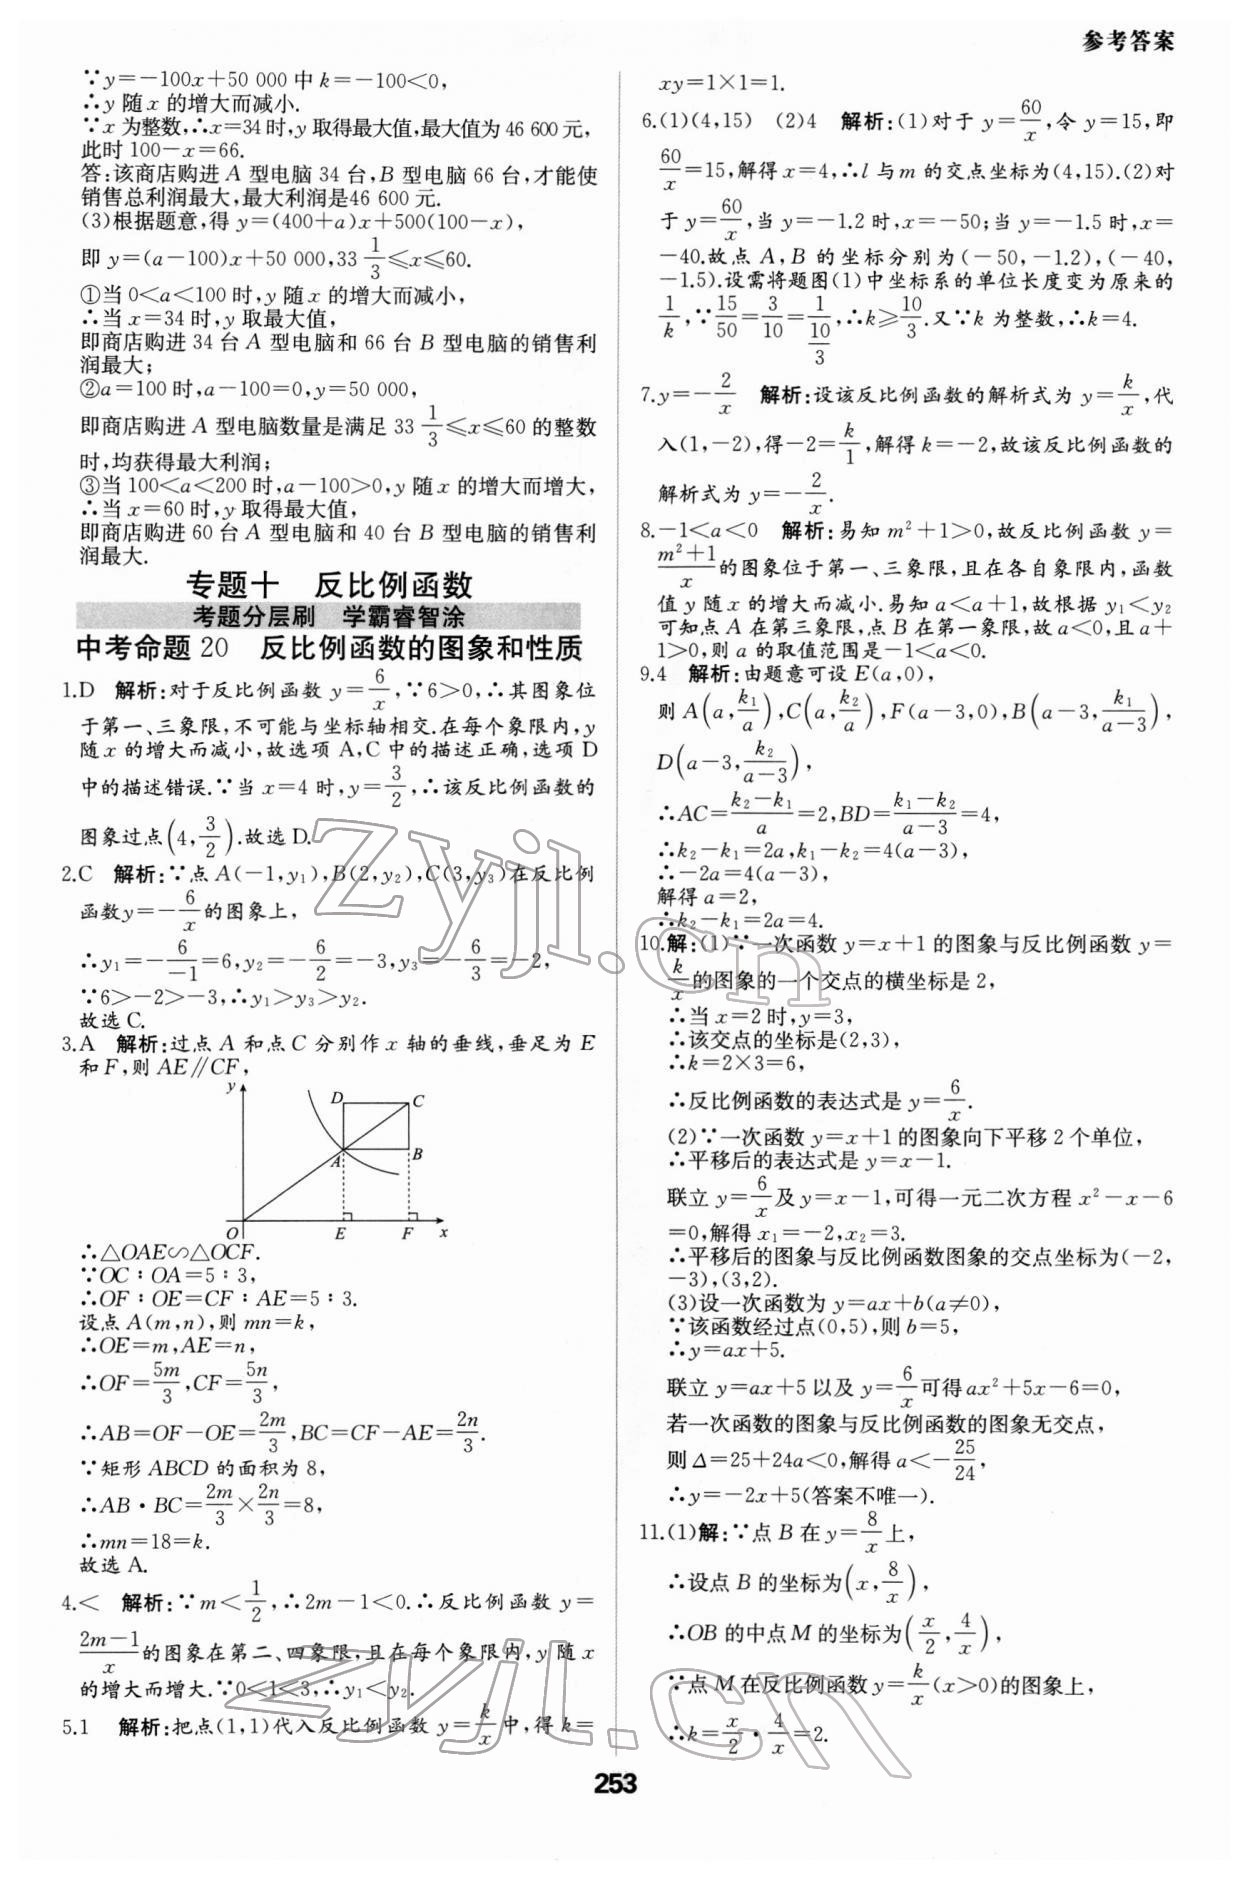 参考答案
∵y=-100x+50 000 中 k=-100<0,
∴y 随 x 的增大而减小.
∵x 为整数,∴x=34时,y 取得最大值,最大值为 46 600元,
此时 100-x=66.
答:该商店购进 A 型电脑 34 台,B 型电脑 66 台,才能使
销售总利润最大,最大利润是46 600元.
(3)根据题意,得 y=(400+a)x+500(100-x),
即 y=(a-100)x+50 000,33 1/3≤x≤60.
①当 0<a<100 时,y 随 x 的增大而减小,
∴当 x=34 时,y 取最大值,
即商店购进 34 台 A 型电脑和 66 台 B 型电脑的销售利
润最大;
②a=100 时,a-100=0,y=50 000,
即商店购进 A 型电脑数量是满足 33 1/3≤x≤60 的整数
时,均获得最大利润;
③当 100<a<200 时,a-100>0,y 随 x 的增大而增大,
∴当 x=60 时,y 取得最大值,
即商店购进 60 台 A 型电脑和 40 台 B 型电脑的销售利
润最大.
专题十 反比例函数
考题分层刷 学霸睿智涂
中考命题 20 反比例函数的图象和性质
1.D 解析:对于反比例函数 y=6/x,∵6>0,∴其图象位
于第一、三象限,不可能与坐标轴相交.在每个象限内,y
随 x 的增大而减小,故选项 A,C 中的描述正确,选项 D
中的描述错误.∵当 x=4 时,y=3/2,∴该反比例函数的
图象过点(4,3/2).故选 D.
2.C 解析:∵点 A(-1,y₁),B(2,y₂),C(3,y₃)在反比例
函数y=-6/x的图象上,
∴y₁=-6/-1=6,y₂=-6/2=-3,y₃=-6/3=-2,
∵6>-2>-3,∴y₁>y₃>y₂.
故选 C.
3.A 解析:过点 A 和点 C 分别作 x 轴的垂线,垂足为 E
和 F,则 AE∥CF,
y
D
C
A
B
O
E
F
x
∴△OAE∽△OCF.
∵OC∶OA=5∶3,
∴OF∶OE=CF∶AE=5∶3.
设点 A(m,n),则 mn=k,
∴OE=m,AE=n,
∴OF=5m/3,CF=5n/3,
∴AB=OF-OE=2m/3,BC=CF-AE=2n/3.
∵矩形 ABCD 的面积为 8,
∴AB·BC=2m/3×2n/3=8,
∴mn=18=k.
故选 A.
4.< 解析:∵m<1/2,∴2m-1<0.∴反比例函数 y=
2m-1/x的图象在第二、四象限,且在每个象限内,y 随 x
的增大而增大.∵0<1<3,∴y₁<y₂.
5.1 解析:把点(1,1)代入反比例函数 y=k/x中,得 k=
xy=1×1=1.
6.(1)(4,15) (2)4 解析:(1)对于 y=60/x,令 y=15,即
60/x=15,解得 x=4,∴l 与 m 的交点坐标为(4,15).(2)对
于 y=60/x,当 y=-1.2 时,x=-50;当 y=-1.5 时,x=
-40.故点 A,B 的坐标分别为(-50,-1.2),(-40,
-1.5).设需将题图(1)中坐标系的单位长度变为原来的
1/k,∵15/50=3/10=1/(10/3),∴k≥10/3.又∵k 为整数,∴k=4.
7.y=-2/x 解析:设该反比例函数的解析式为 y=k/x,代
入(1,-2),得-2=k/1,解得 k=-2,故该反比例函数的
解析式为 y=-2/x.
8.-1<a<0 解析:易知 m²+1>0,故反比例函数 y=
m²+1/x的图象位于第一、三象限,且在各自象限内,函数
值 y 随 x 的增大而减小.易知 a<a+1,故根据 y₁<y₂
可知点 A 在第三象限,点 B 在第一象限,故 a<0,且 a+
1>0,则 a 的取值范围是-1<a<0.
9.4 解析:由题意可设 E(a,0),
则 A(a,k₁/a),C(a,k₂/a),F(a-3,0),B(a-3,k₁/a-3),
D(a-3,k₂/a-3),
∴AC=k₂-k₁/a=2,BD=k₁-k₂/a-3=4,
∴k₂-k₁=2a,k₁-k₂=4(a-3),
∴-2a=4(a-3),
解得 a=2,
∴k₂-k₁=2a=4.
10.解:(1)∵一次函数 y=x+1 的图象与反比例函数 y=
k/x的图象的一个交点的横坐标是 2,
∴当 x=2 时,y=3,
∴该交点的坐标是(2,3),
∴k=2×3=6,
∴反比例函数的表达式是 y=6/x.
(2)∵一次函数 y=x+1 的图象向下平移 2 个单位,
∴平移后的表达式是 y=x-1.
联立 y=6/x及 y=x-1,可得一元二次方程 x²-x-6
=0,解得 x₁=-2,x₂=3.
∴平移后的图象与反比例函数图象的交点坐标为(-2,
-3),(3,2).
(3)设一次函数为 y=ax+b(a≠0),
∵该函数经过点(0,5),则 b=5,
∴y=ax+5.
联立 y=ax+5 以及 y=6/x可得ax²+5x-6=0,
若一次函数的图象与反比例函数的图象无交点,
则 Δ=25+24a<0,解得 a<-25/24,
∴y=-2x+5(答案不唯一).
11.(1)解:∵点 B 在 y=8/x上,
∴设点 B 的坐标为(x,8/x),
∴OB 的中点 M 的坐标为(x/2,4/x),
∵点 M 在反比例函数 y=k/x(x>0)的图象上,
∴k=x/2·4/x=2.
253
zyjl.cn
zyjl.cn